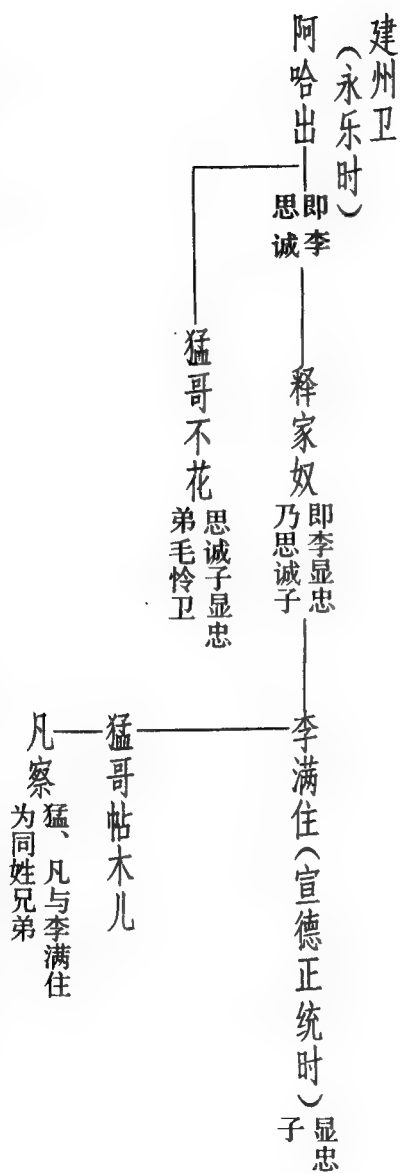 建州卫
（永乐时）
阿哈出
即李
思诚
释家奴
即李显忠
乃思诚子
猛哥不花
思诚子显忠
弟毛怜卫
李满住（宣德正统时）
显忠
子
猛哥帖木儿
凡察
猛、凡与李满住
为同姓兄弟